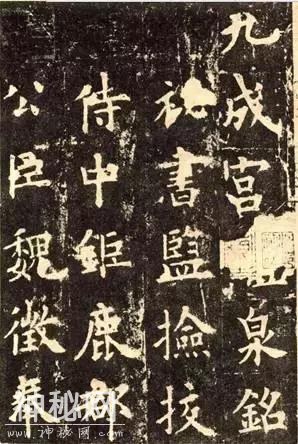 九成宮泉銘
祕書監撿挍
侍中鉅鹿郡
公臣魏徵奉
神秘网
www.神秘网.com